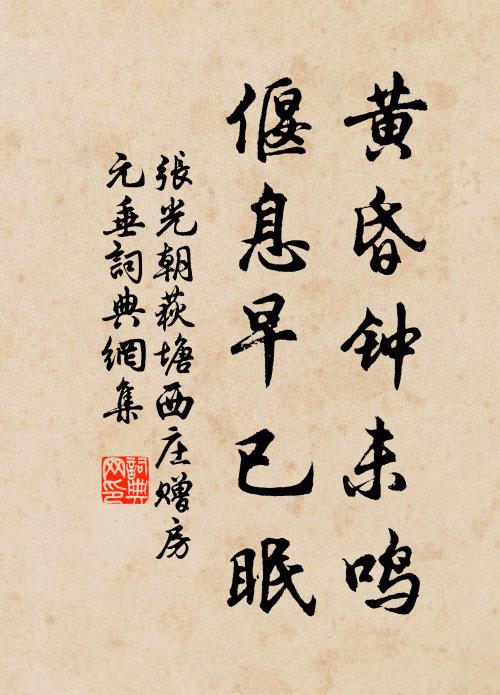 黄昏钟未鸣
偃息早已眠
張光朝荻塘西庄赠房
元垂詞典網集
詞典网印